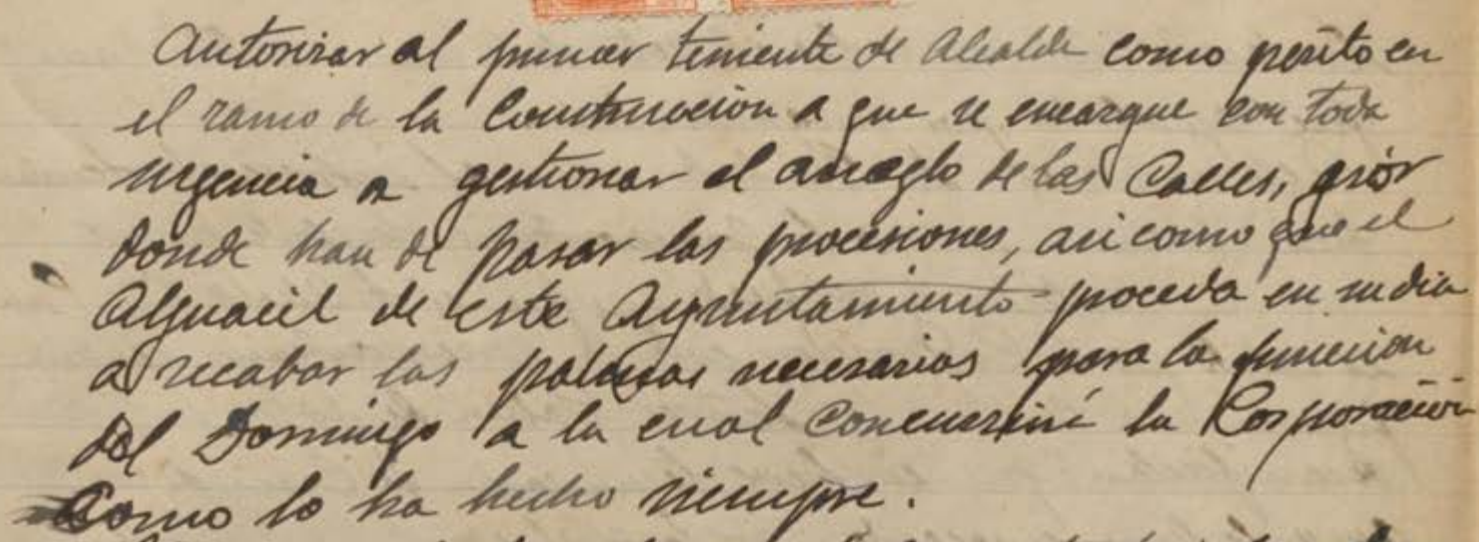 Autorizar al primer teniente de Alcalde como perito en
el ramo de la Construccion a que se encargue con toda
urgencia a gestionar el arreglo de las Calles, por
donde han de pasar las procesiones, asi como que el
Alguacil de este Ayuntamiento proceda en su dia
a recabar las palmas necesarias para la funcion
del Domingo a la cual concurrirá la Corporación
como lo ha hecho siempre.